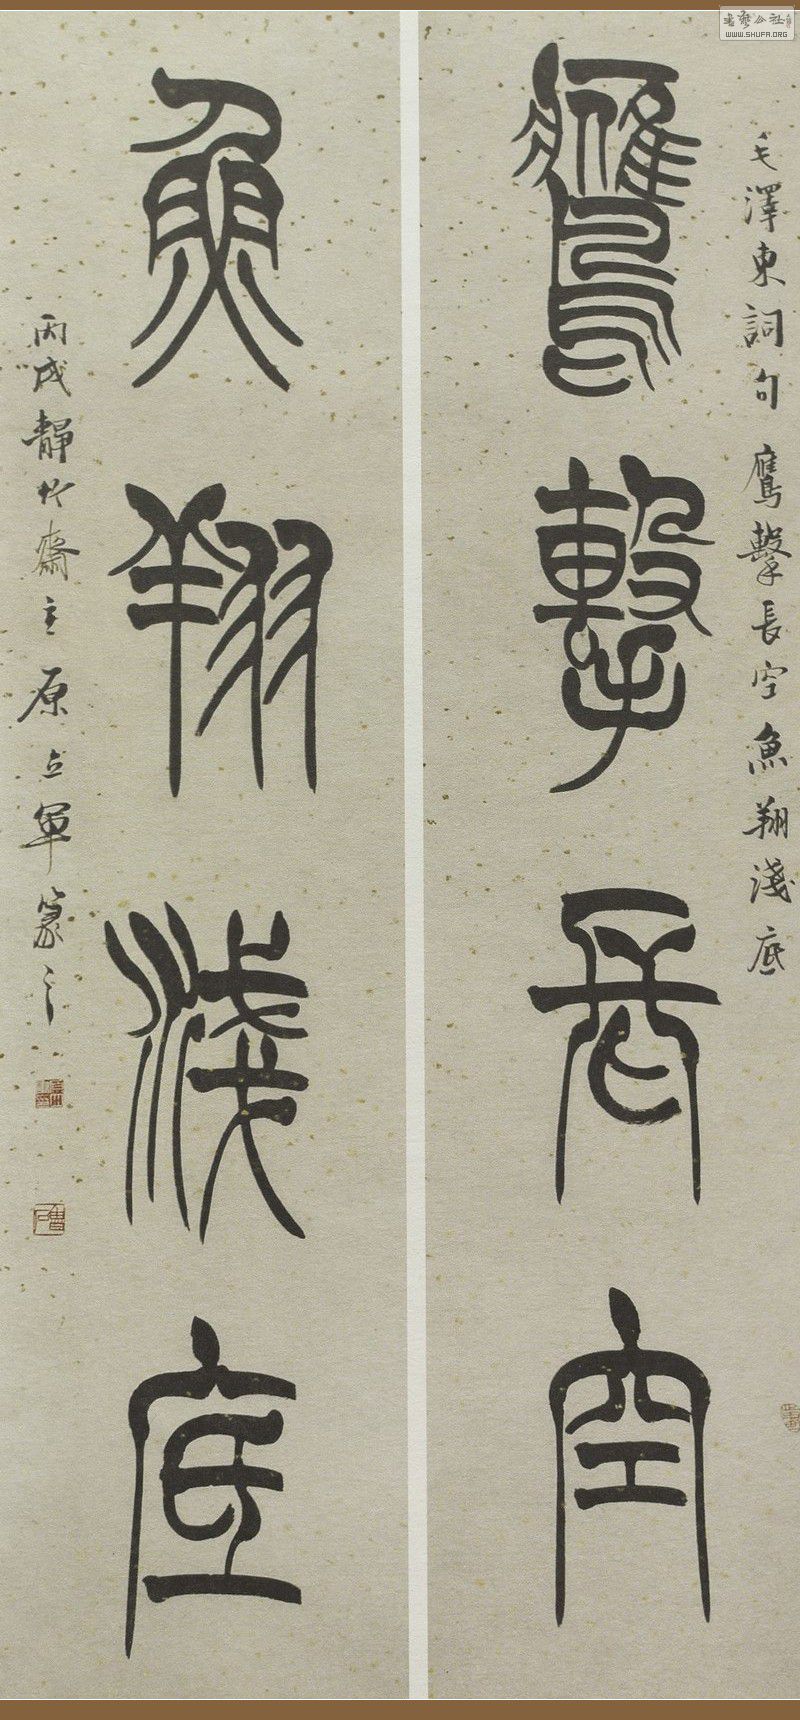 毛澤東詞句鷹擊長空魚翔淺底
鷹擊長空
魚翔淺底
丙戌靜竹齋主原立軍篆之
書藝公社
WWW.SHUFA.ORG